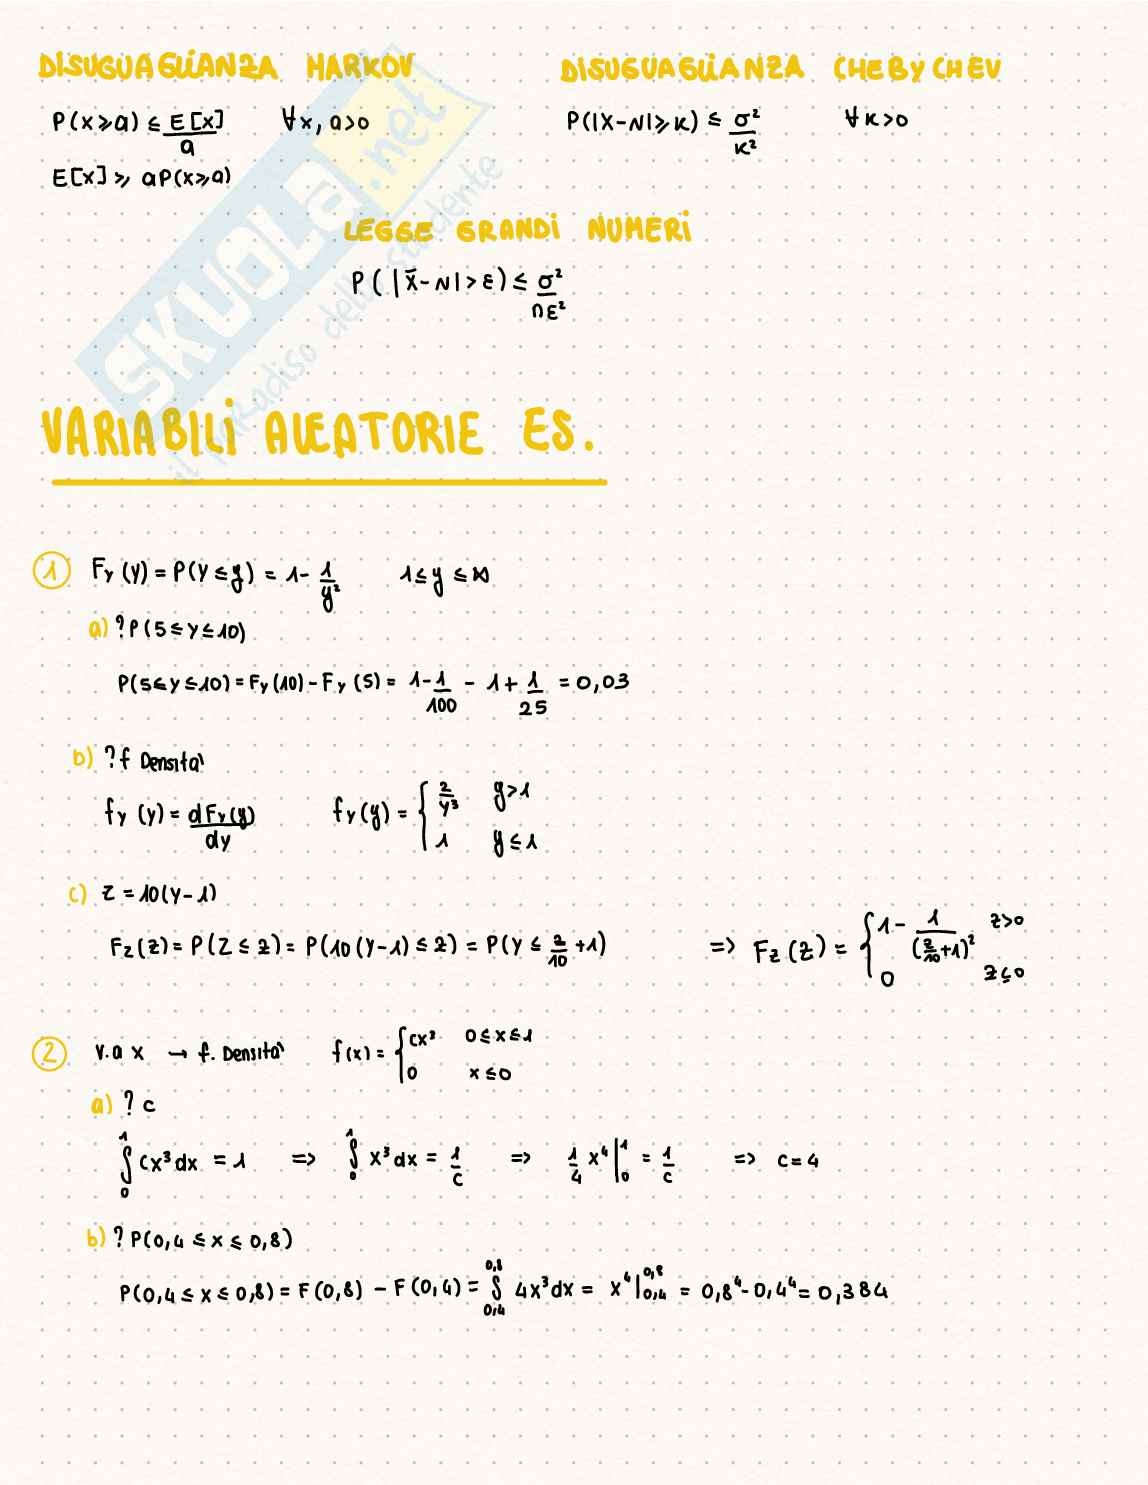 DISUGUAGLIANZA MARKOV
P(x≥a) ≤ E[x]/a ∀x, a>0
E[x] ≥ aP(x≥a)
DISUGUAGLIANZA CHEBYCHEV
P(|X-N|≥K) ≤ σ²/K² ∀K>0
LEGGE GRANDI NUMERI
P(|x̄-N|>ε) ≤ σ²/nε²
SKUOLA.net
il paradiso dello studente
VARIABILI ALEATORIE ES.
1 Fy(y) = P(Y≤y) = 1 - 1/y² 1≤y≤∞
a) ?P(5≤y≤10)
P(5≤y≤10) = Fy(10) - Fy(5) = 1 - 1/100 - 1 + 1/25 = 0,03
b) ?f Densità
fy(y) = dFy(y)/dy fy(y) = { 2/y³ y>1
1 y≤1
c) Z = 10(Y-1)
Fz(z) = P(Z≤z) = P(10(Y-1)≤z) = P(Y≤ z/10 +1) => Fz(z) = { 1 - 1/(z/10+1)² z>0
0 z≤0
2 v.a x → f. Densità f(x) = { cx³ 0≤x≤1
0 x≤0
a) ? c
∫₀¹ cx³dx = 1 => ∫₀¹ x³dx = 1/c => 1/4 x⁴|₀¹ = 1/c => c=4
b) ? P(0,4 ≤ x ≤ 0,8)
P(0,4 ≤ x ≤ 0,8) = F(0,8) - F(0,4) = ∫0,4 0,8 4x³dx = x⁴|0,4 0,8 = 0,8⁴ - 0,4⁴ = 0,384